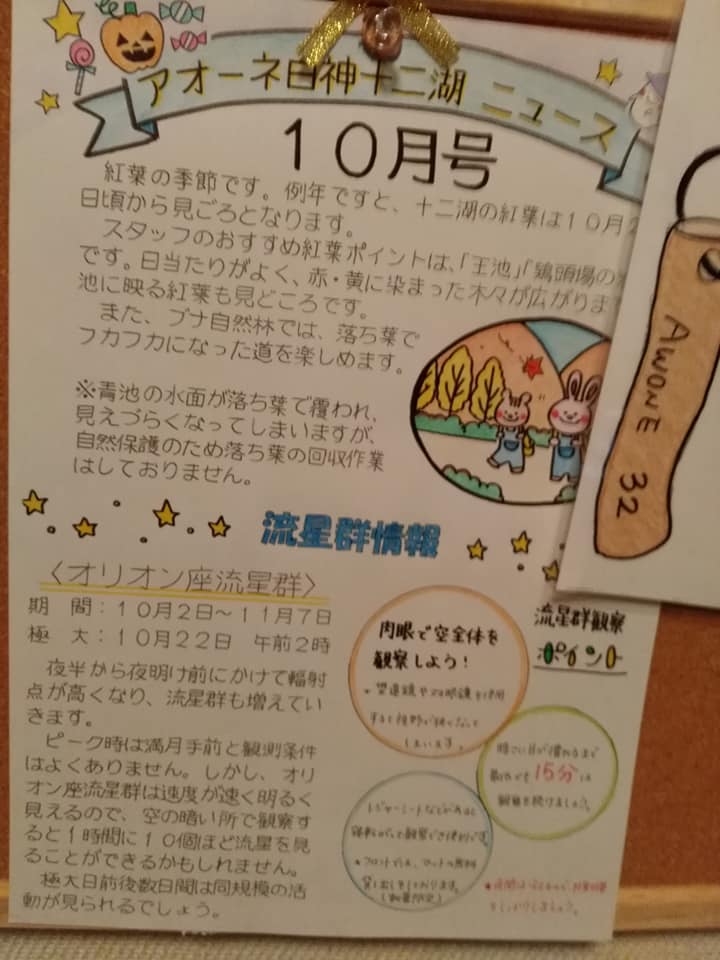 アオーネ白神十二湖 ニュース
10月号
紅葉の季節です。例年ですと、十二湖の紅葉は10月2
日頃から見ごろとなります。
スタッフのおすすめ紅葉ポイントは、「王池」「鶏頭場の
です。日当たりがよく、赤・黄に染まった木々が広がりま
池に映る紅葉も見どころです。
また、ブナ自然林では、落ち葉で
フカフカになった道を楽しめます。
※青池の水面が落ち葉で覆われ、
見えづらくなってしまいますが、
自然保護のため落ち葉の回収作業
はしておりません。
AWONE 32
流星群情報
〈オリオン座流星群〉
期 間:10月2日~11月7日
極 大:10月22日 午前2時
夜半から夜明け前にかけて輻射
点が高くなり、流星群も増えてい
きます。
ピーク時は満月手前と観測条件
はよくありません。しかし、オリ
オン座流星群は速度が速く明るく
見えるので、空の暗い所で観察す
ると1時間に10個ほど流星を見
ることができるかもしれません。
極大日前後数日間は同規模の活
動が見られるでしょう。
流星群観察
ポイント
肉眼で空全体を
観察しよう!
しまいます。
暗さに目が慣れるまで
最低でも15分は
観察を続けましょう。
レジャーシートなどがあると
寝転がって観察でき便利です。
貸し出しをしております。